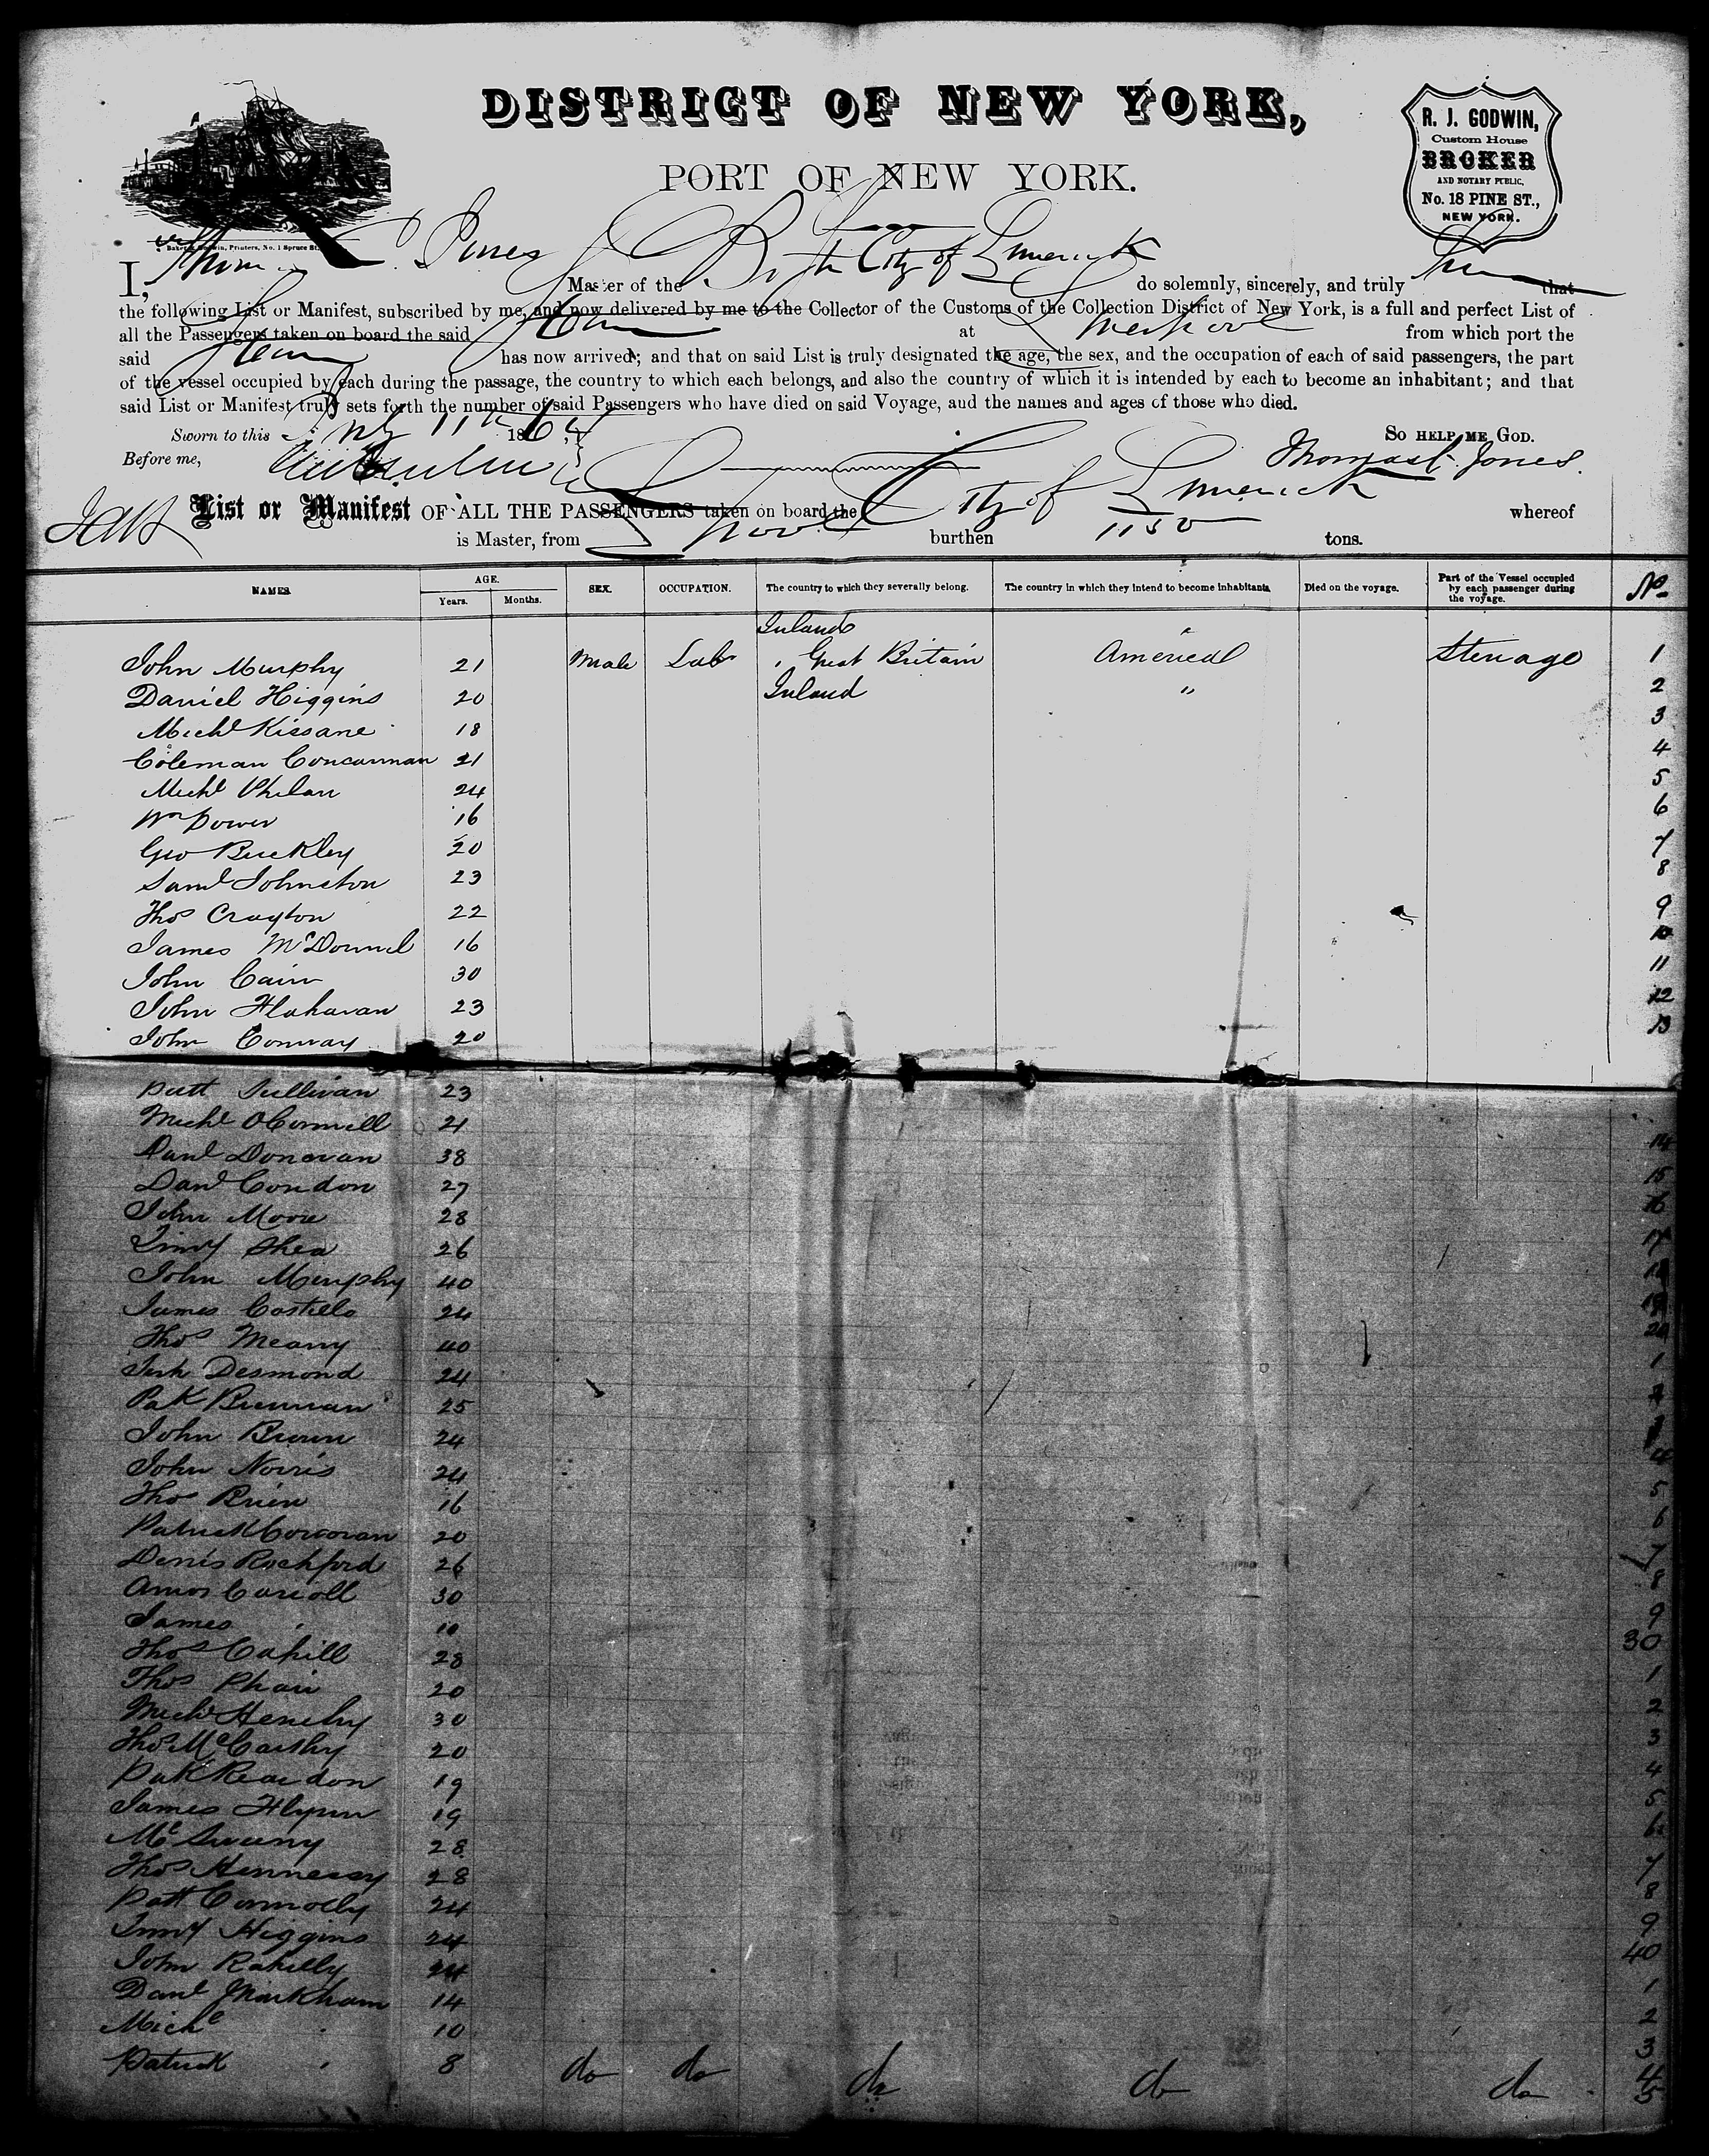 DISTRICT OF NEW YORK,
PORT OF NEW YORK.
R. J. GODWIN,
Custom House
BROKER
AND NOTARY PUBLIC,
No. 18 PINE ST.,
NEW YORK.
Baker & Godwin, Printers, No. 1 Spruce St.
I, Thomas C. Jones Master of the Br Str City of Limerick do solemnly, sincerely, and truly Swear that
the following List or Manifest, subscribed by me, and now delivered by me to the Collector of the Customs of the Collection District of New York, is a full and perfect List of
all the Passengers taken on board the said Steamer at Liverpool from which port the
said Steamer has now arrived; and that on said List is truly designated the age, the sex, and the occupation of each of said passengers, the part
of the vessel occupied by each during the passage, the country to which each belongs, and also the country of which it is intended by each to become an inhabitant; and that
said List or Manifest truly sets forth the number of said Passengers who have died on said Voyage, and the names and ages of those who died.
Sworn to this July 11th 1864 SO HELP ME GOD.
Before me, Thomas C. Jones.
List or Manifest OF ALL THE PASSENGERS taken on board the City of Limerick whereof
is Master, from L'pool burthen 1150 tons.
NAMES. AGE. SEX. OCCUPATION. The country to which they severally belong. The country in which they intend to become inhabitants. Died on the voyage. Part of the Vessel occupied by each passenger during the voyage. No.
Years. Months.
Ireland
John Murphy 21 Male Lab Great Britain America Steerage 1
Daniel Higgins 20 Ireland " 2
Michl Kissane 18 3
Coleman Concannan 21 4
Michl Phelan 24 5
Wm Power 16 6
Geo Buckley 20 7
Saml Johnston 23 8
Thos Crayton 22 9
James McDonnel 16 10
John Cain 30 11
John Flahavan 23 12
John Conway 20 13
Patt Sullivan 23
Michl OConnell 21 14
Danl Donovan 38 15
Danl Condon 27 16
John Moore 28 17
Timy Shea 26
John Murphy 40
James Costello 24 20
Thos Meany 40 1
Jerh Desmond 24 2
Pak Brennan 25
John Brown 24 4
John Norris 24 5
Thos Brien 16 6
Patrick Corcoran 20 7
Denis Rochford 26 8
Amos Carroll 30 9
James " 10 30
Thos Cahill 28 1
Thos Phair 20 2
Michl Henehy 30 3
Thos McCarthy 20 4
Pak Reardon 19 5
James Flynn 19 6
Mc Sweeny 28 7
Thos Hennessy 28 8
Patt Connolly 24 9
Timy Higgins 24 40
John Rahilly 24 1
Danl Markham 14 2
Michl " 10 3
Patrick " 8 do do do do do 4
5